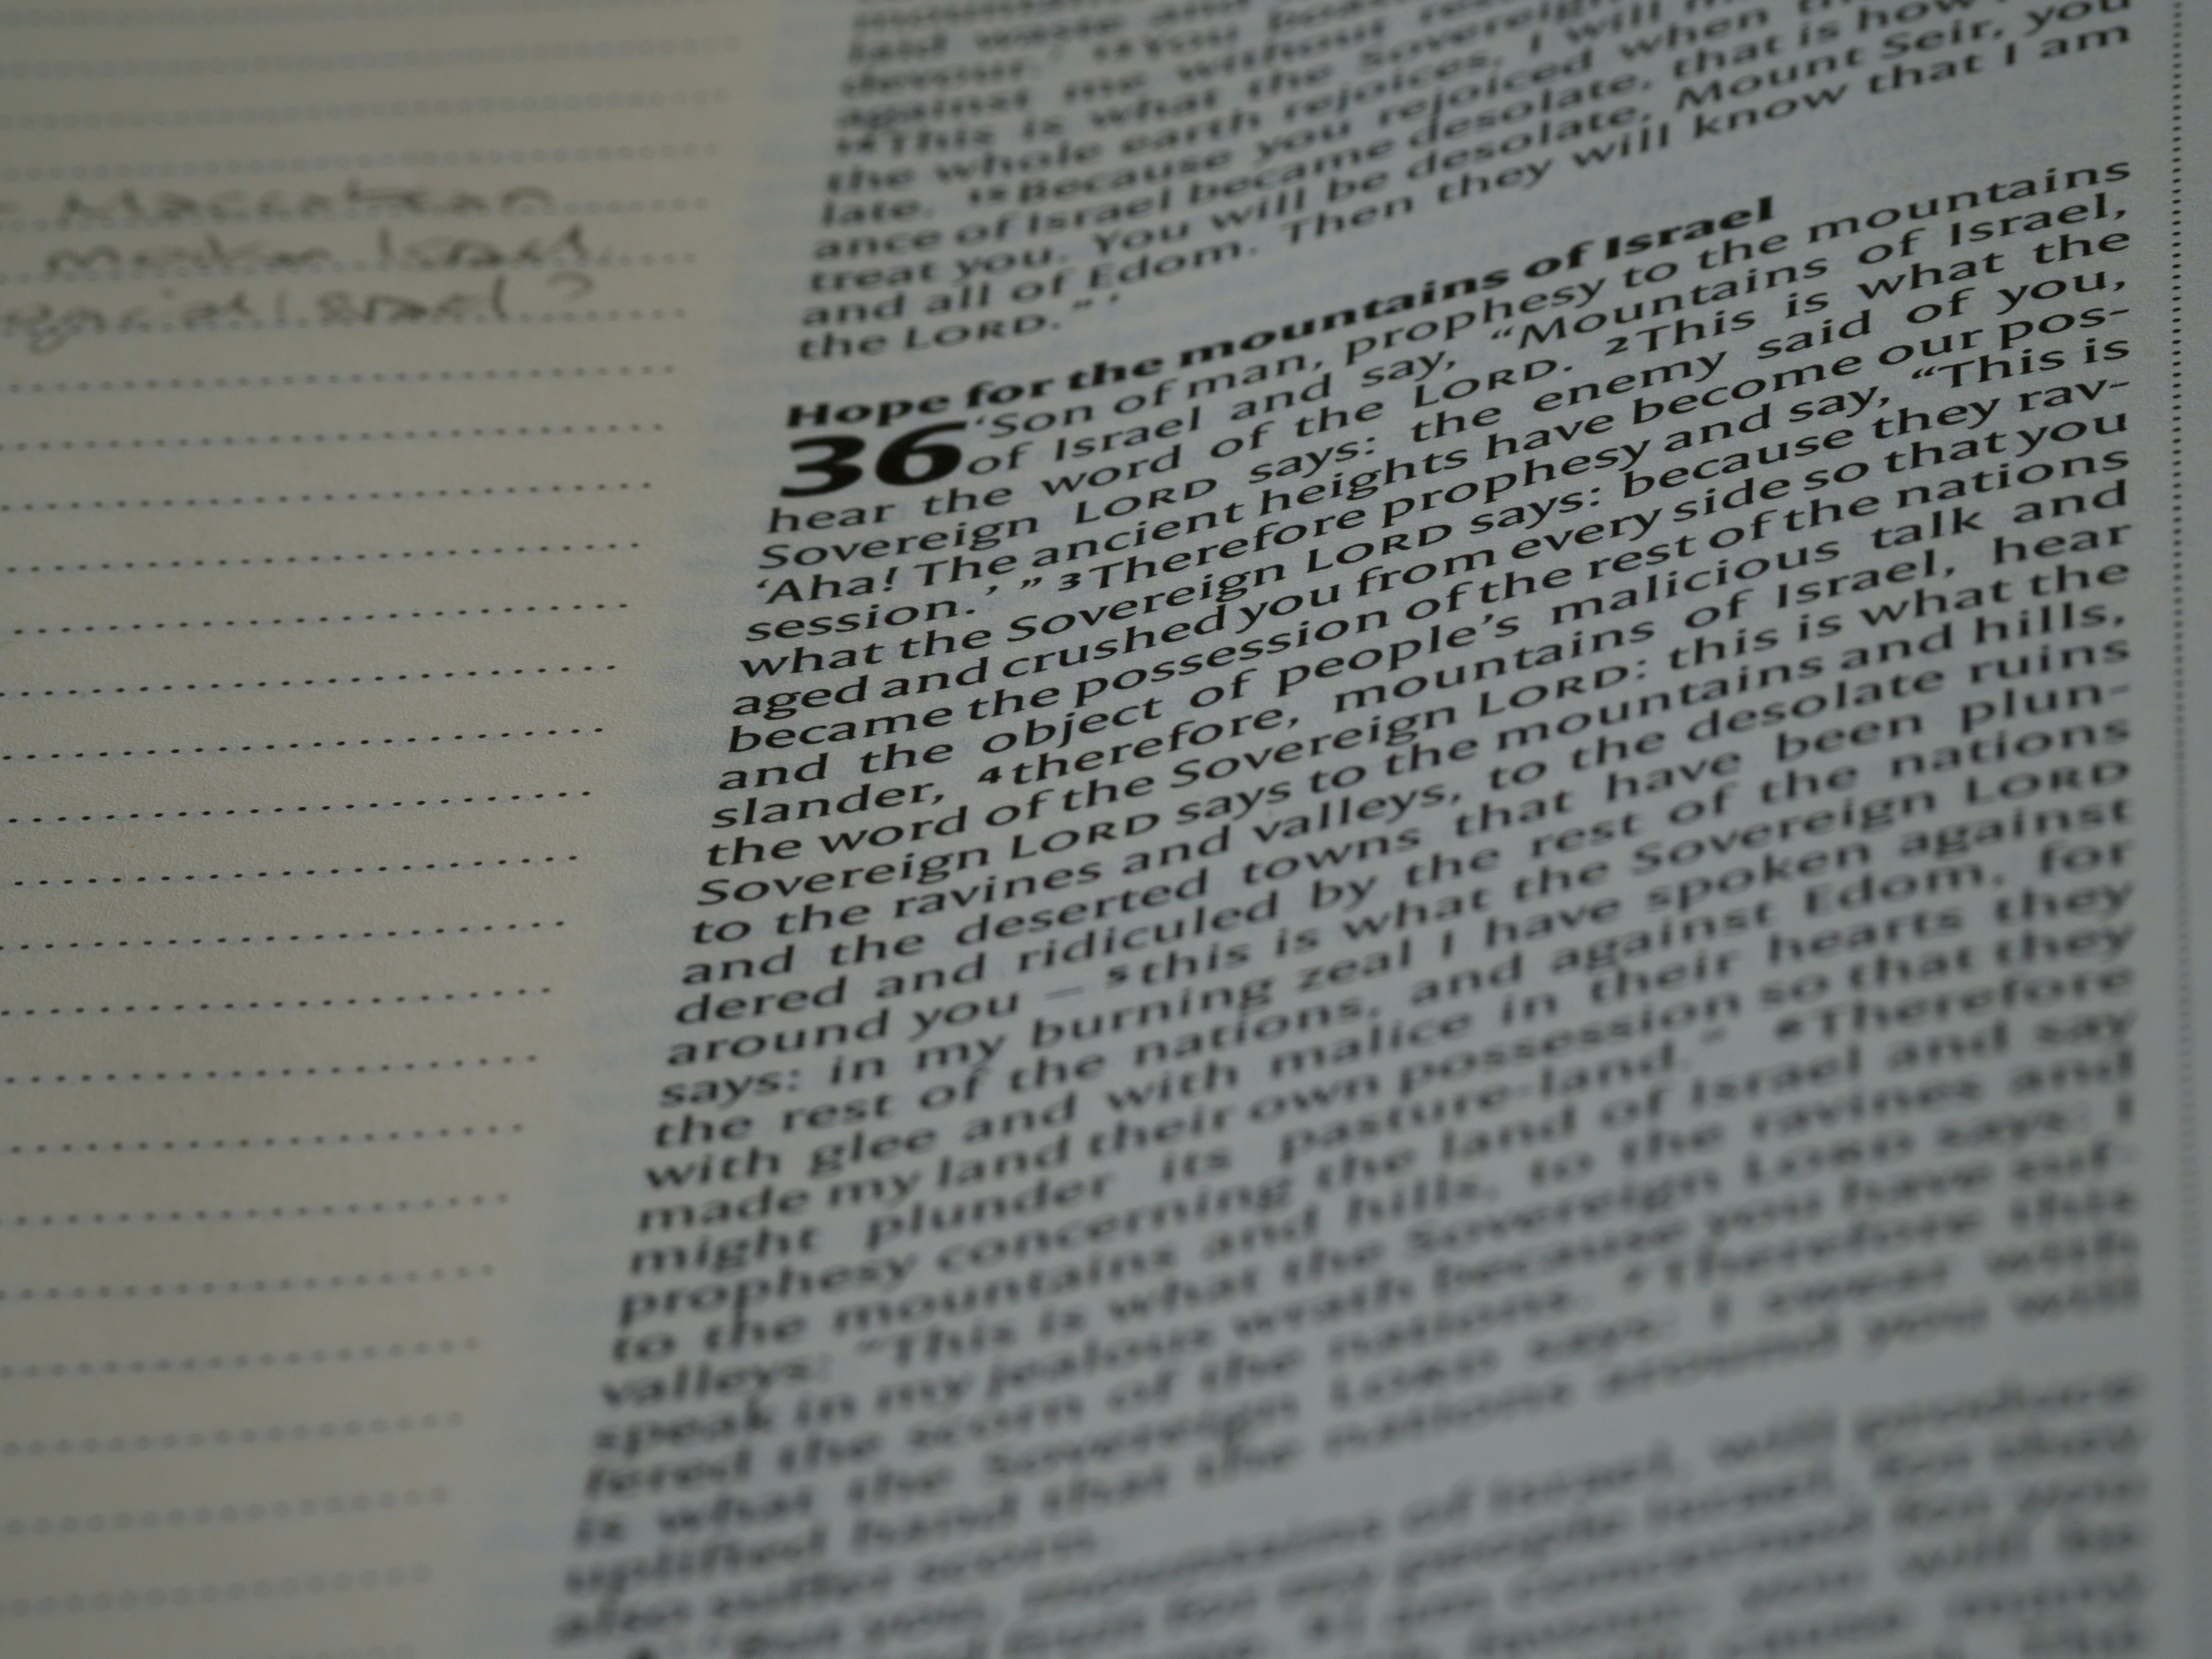 Maccabean
modern Israel
Israel?
laid waste and
devour." 13You
against me without
14This is what the Sovereign
the whole earth rejoices, I will
late. 15Because you rejoiced when
ance of Israel became desolate, that is how
treat you. You will be desolate, Mount Seir, you
and all of Edom. Then they will know that I am
the LORD." '
Hope for the mountains of Israel
36 'Son of man, prophesy to the mountains
of Israel and say, "Mountains of Israel,
hear the word of the LORD. 2This is what the
Sovereign LORD says: the enemy said of you,
'Aha! The ancient heights have become our pos-
session.' " 3Therefore prophesy and say, "This is
what the Sovereign LORD says: because they rav-
aged and crushed you from every side so that you
became the possession of the rest of the nations
and the object of people's malicious talk and
slander, 4therefore, mountains of Israel, hear
the word of the Sovereign LORD: this is what the
Sovereign LORD says to the mountains and hills,
to the ravines and valleys, to the desolate ruins
and the deserted towns that have been plun-
dered and ridiculed by the rest of the nations
around you – 5this is what the Sovereign LORD
says: in my burning zeal I have spoken against
the rest of the nations, and against Edom, for
with glee and with malice in their hearts they
made my land their own possession so that they
might plunder its pasture-land." 6Therefore
prophesy concerning the land of Israel and say
to the mountains and hills, to the ravines and
valleys: "This is what the Sovereign LORD says: I
speak in my jealous wrath because you have suf-
fered the scorn of the nations. 7Therefore this
is what the Sovereign LORD says: I swear with
uplifted hand that the nations around you will
also suffer scorn.
mountains of Israel, will produce
people Israel, for they